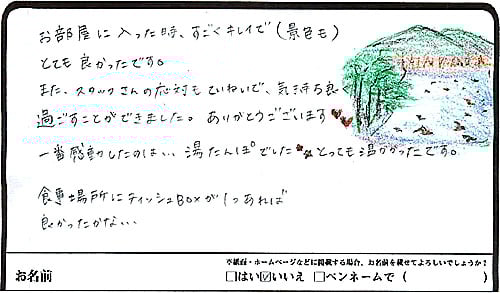 お部屋に入った時、すごくキレイで(景色も)
とても良かったです。
また、スタッフさんの応対もていねいで、気持ち良く
過ごすことができました。ありがとうございます
一番感動したのは… 湯たんぽでした とっても温かかったです。
食事場所にティッシュBoxが1つあれば
良かったかな…
※紙面・ホームページなどに掲載する場合、お名前を載せてよろしいでしょうか?
お名前 □はい ☑いいえ □ペンネームで ( )